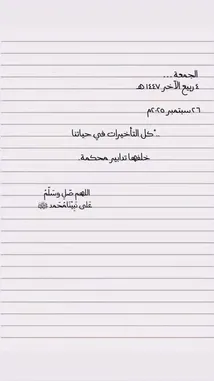 الجمعة ...
٤ ربيع الآخر ١٤٤٧ هـ
٢٦ سبتمبر ٢٠٢٥م
.."كل التأخيرات في حياتنا
خلفها تدابير محكمة.
اللهم صَلِ وسَلّمُ
عَلى نَبِيْنَا مُحَمد ﷺ